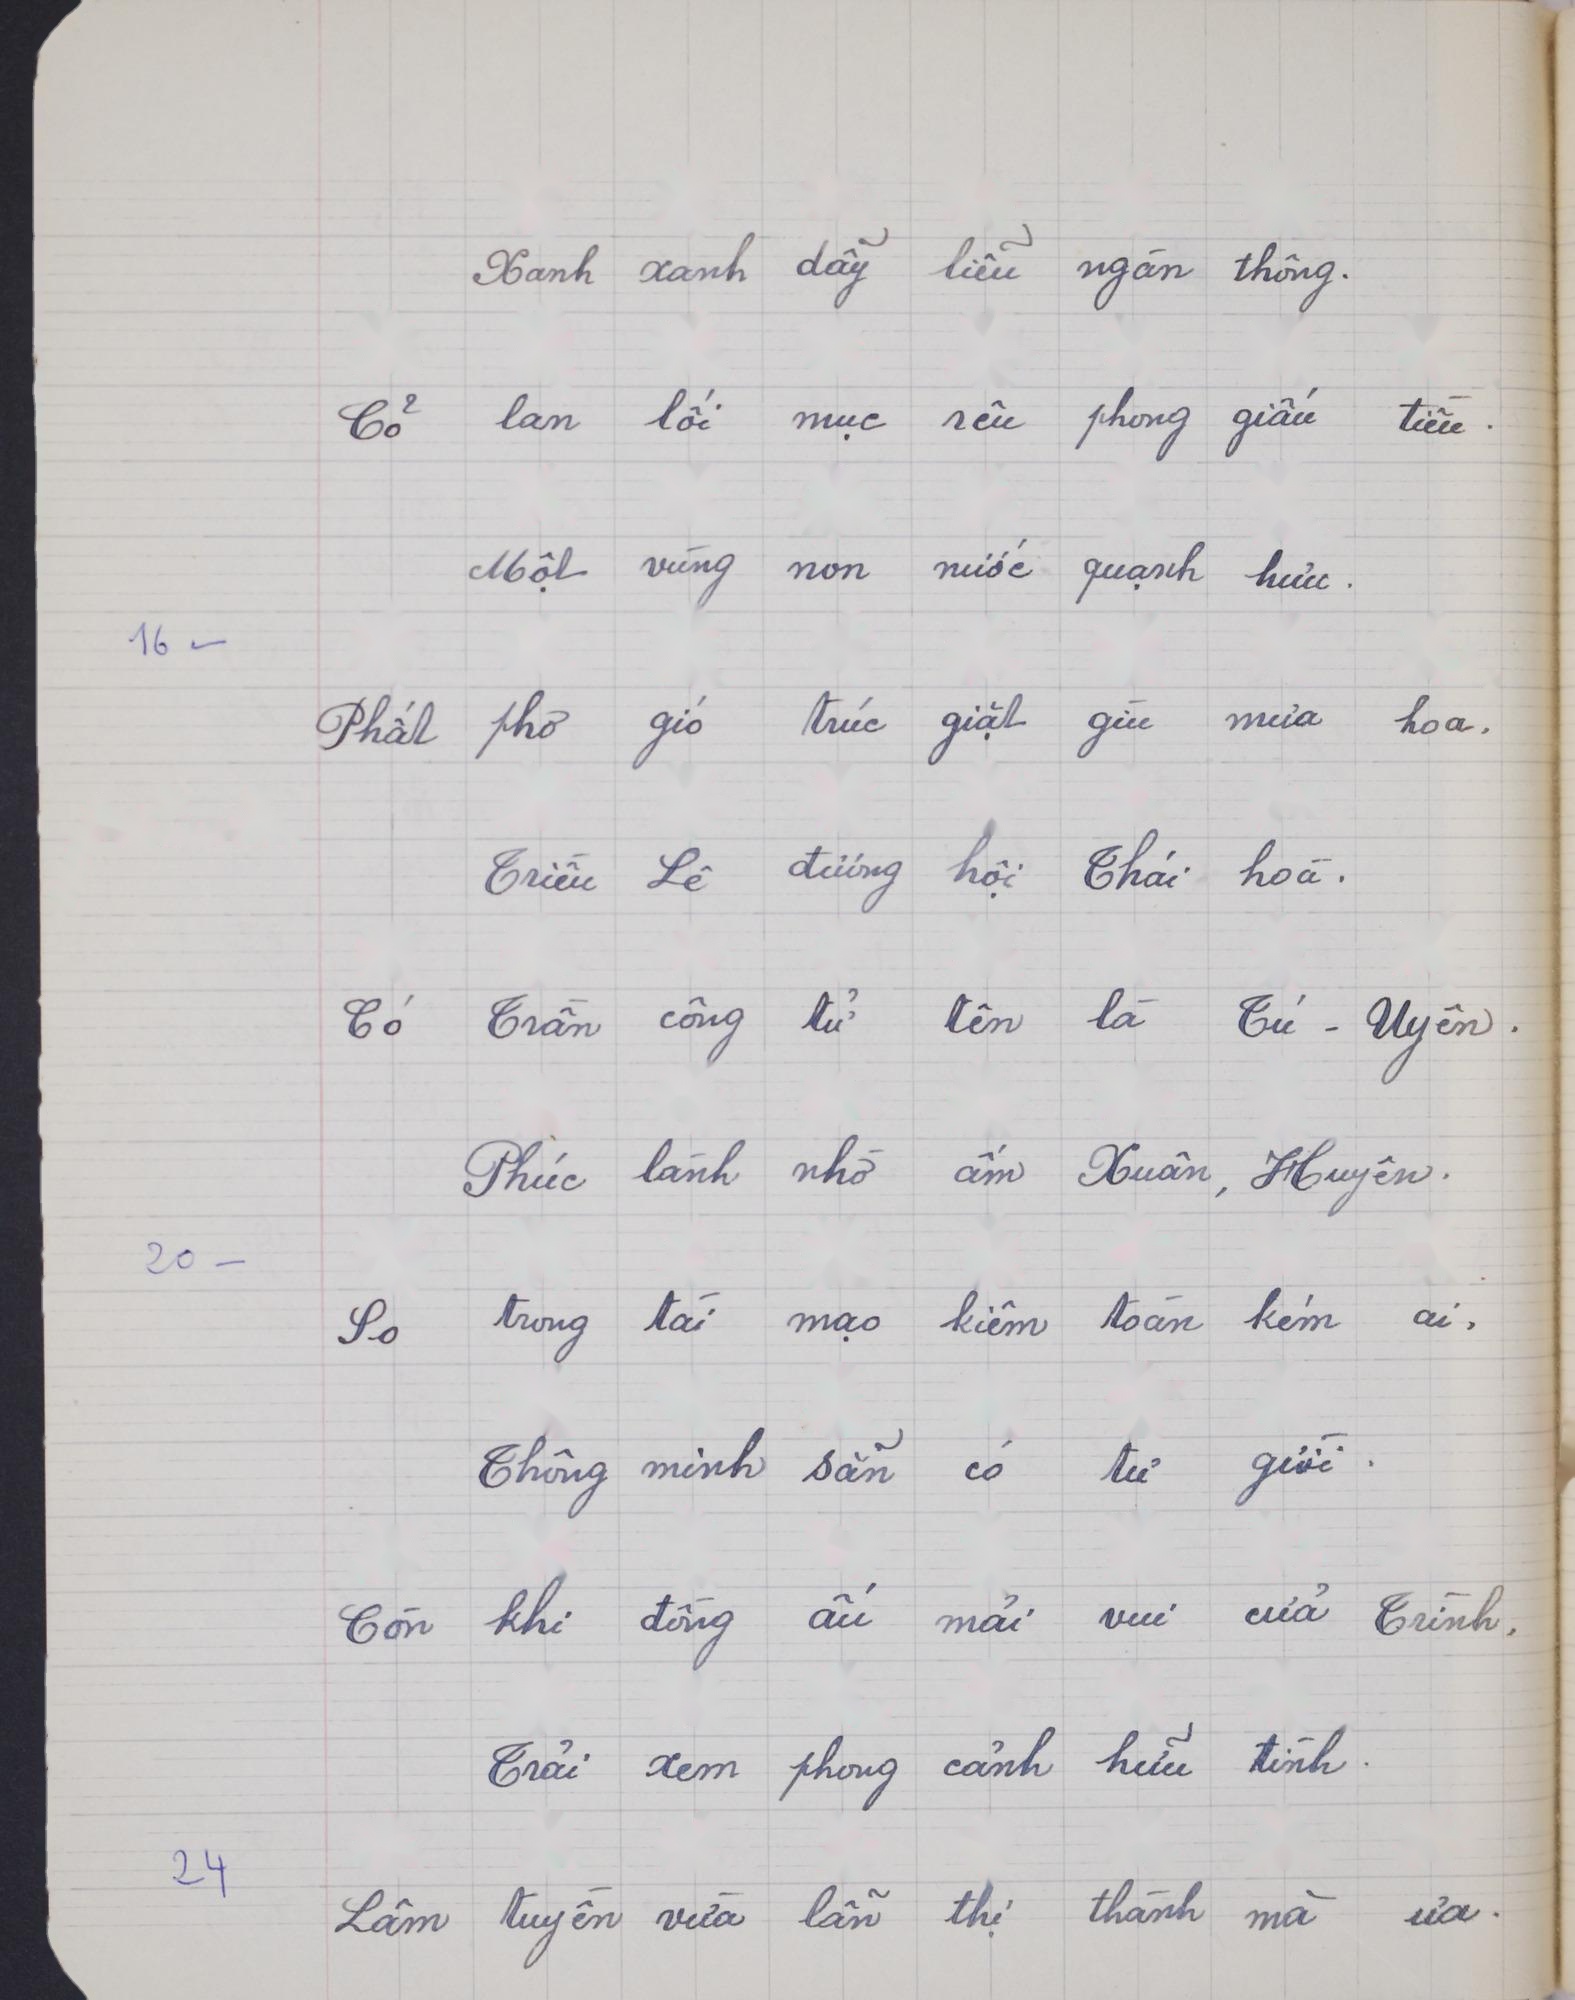 Xanh xanh dẫy liễu ngàn thông.
Cỏ lan lối mục rêu phong giấu tiều.
Một vùng non nước quạnh hưu.
16 -
Phất phơ gió trúc giặt gìu mưa hoa.
Triều Lê đương hội Thái hoà.
Có Trần công tử tên là Tú - Uyên.
Phúc lành nhờ ấm Xuân, Huyên.
20 -
So trong tài mạo kiêm toàn kém ai.
Thông minh sẵn có tư giời.
Còn khi đồng ấu mải vui cửa Trình.
Trải xem phong cảnh hữu tình.
24
Lâm tuyền vừa lẫn thị thành mà ưa.